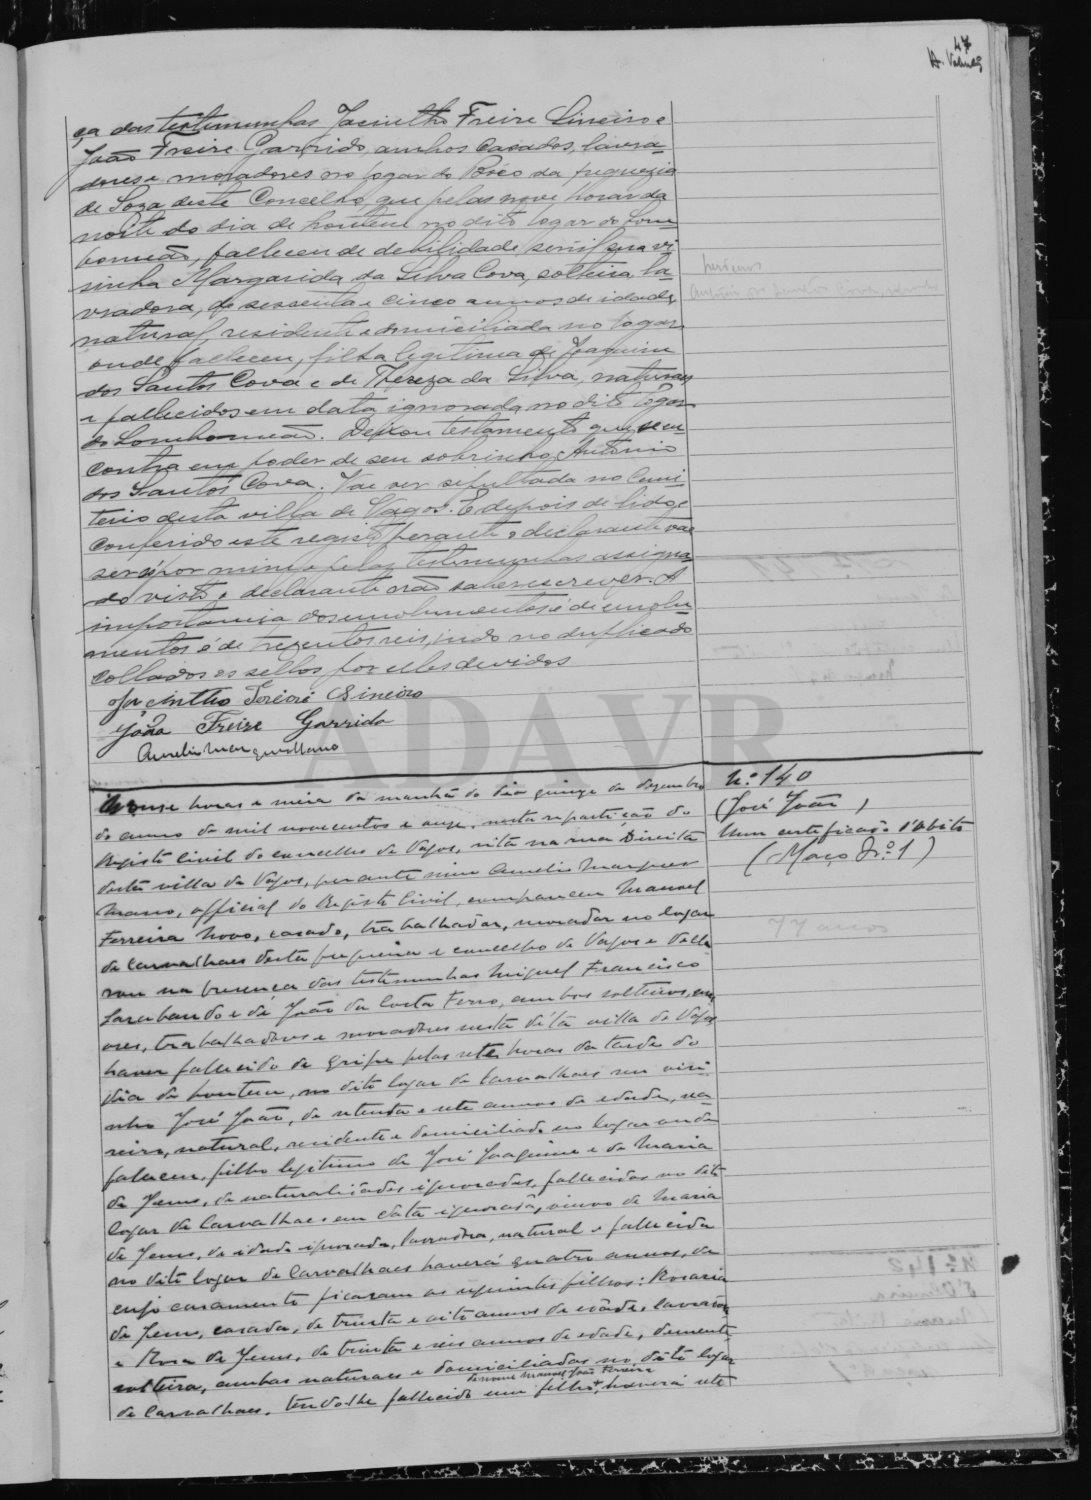 47
ça das testemunhas Jacintho Freire Sineiro e
João Freire Garrido, ambos casados, lavra-
dores e moradores no logar do Boco da freguezia
de Soza deste Concelho, que pelas nove horas da
noite do dia de hontem no dito logar do Lom-
bomeão, falleceu de debilidade senil sua vi-
sinha Margarida da Silva Cova, solteira, la-
vradora, de sessenta e cinco annos de idade,
natural, residente e domiciliada no logar
onde falleceu, filha legitima de Joaquim
dos Santos Cova e de Thereza da Silva, naturaes
e fallecidos em data ignorada no dito logar
do Lombomeão. Deixou testamento que se en-
contra em poder de seu sobrinho Antonio
dos Santos Cova. Vae ser sepultada no Cemi-
terio desta villa de Vagos. E depois de lido e
conferido este registo perante o declarante vae
ser só por mim e pelas testemunhas assigna-
do visto o declarante não saber escrever. A
importancia dos emolumentos é de emolu-
mentos é de trezentos reis, indo no duplicado
collados os sellos por elles devidos
Jacintho Freire Sineiro
João Freire Garrido
Aurelio Marques Mano
Nº 140
(José João)
Um certificado d'obito
(Maço Nº 1)
Ás onze horas e meia da manhã do dia quinze de dezembro
do anno de mil novecentos e onze, nesta repartição do
Registo Civil do concelho de Vagos, sita na rua Direita
desta villa de Vagos, perante mim Aurelio Marques
Mano, official do Registo Civil, compareceu Manoel
Ferreira Novo, casado, trabalhador, morador no logar
de Carvalhaes desta freguezia e concelho de Vagos e decla-
rou na presença das testemunhas Miguel Francisco
Sarabando e de João da Costa Ferro, ambos solteiros,
trabalhadores e moradores nesta dita villa de Vagos
haver fallecido de gripe pelas sete horas da tarde do
dia de hontem, no dito logar de Carvalhaes seu visi-
nho José João, de setenta e sete annos de edade,
natural, residente e domiciliado no logar onde
falleceu, filho legitimo de José Joaquim e de Maria
de Jesus, de naturalidades ignoradas, fallecidos no dito
logar de Carvalhaes em data ignorada, viuvo de Maria
de Jesus, de edade ignorada, lavradora, natural e fallecida
no dito logar de Carvalhaes haverá quatro annos, de
cujo casamento ficaram os seguintes filhos: Rosaria
de Jesus, casada, de trinta e oito annos de edade, lavradora
e Rosa de Jesus, de trinta e seis annos de edade, demente
solteira, ambas naturaes e domiciliadas no dito logar
de nome Manoel João Ferreira
de Carvalhaes, tendo-lhe fallecido um filho, haverá sete
77 annos
ADAVR